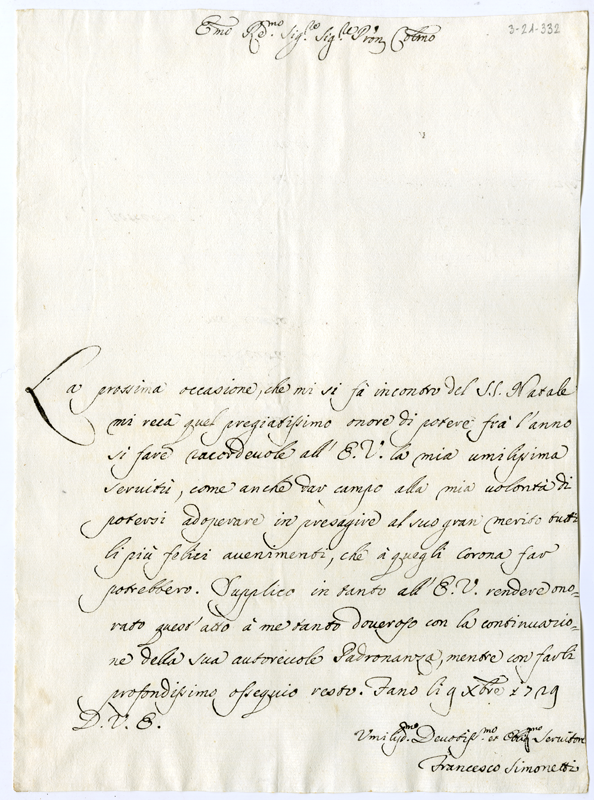 Emo Rdmo Sigre Sigre Pron Colmo
3-21-332
La prossima occasione, che mi si fà incontro del S.S. Natale
mi reca quel pregiatissimo onore di potere frà l'anno
si fare racordevole all' E.V. la mia umilissima
servitù, come anche dar campo alla mia volontà di
potersi adoperare in presagire al suo gran merito tutti
li più felici avenimenti, che à quegli corona far
potrebbero. Supplico in tanto all' E.V. rendere ono-
rato quest'atto à me tanto doveroso con la continuazio-
ne della sua autorevole Padronanza, mentre con farli
profondissimo ossequio resto. Fano li 9 Xbre 1729
D. V. E.
Umilismo Devotissmo et Obligmo Servitore
Francesco Simonetti